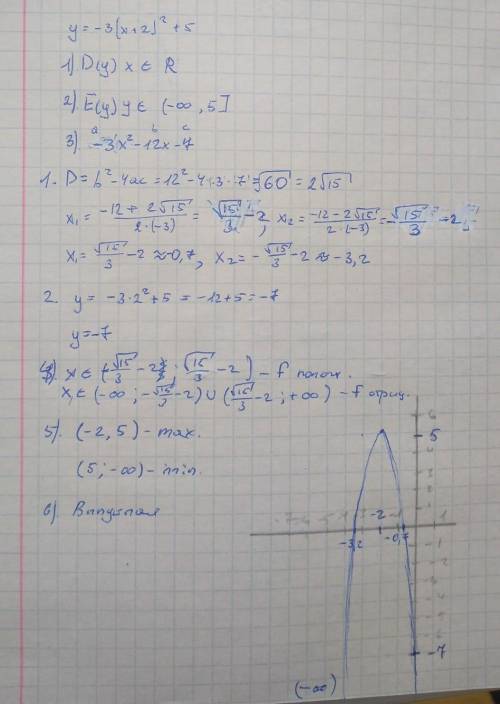 y = -3(x+2)² + 5
1) D(y) x ∈ R
2) E(y) y ∈ (-∞, 5]
a b c
3) -3x² - 12x - 7
1. D = b² - 4ac = 12² - 4·3·7 = √60 = 2√15
x₁ = (-12 + 2√15)/(2·(-3)) = √15/3 - 2, x₂ = (-12 - 2√15)/(2·(-3)) = -√15/3 - 2
x₁ = √15/3 - 2 ≈ -0,7, x₂ = -√15/3 - 2 ≈ -3,2
2. y = -3·2² + 5 = -12 + 5 = -7
y = -7
4) x ∈ (-√15/3 - 2; √15/3 - 2) - f полож.
x ∈ (-∞; -√15/3 - 2) ∪ (√15/3 - 2; +∞) - f отриц.
5) (-2, 5) - max.
(5; -∞) - min.
6) Выпуклая
6
5
-2
1
-3,2
-0,7
-1
-7
(-∞)